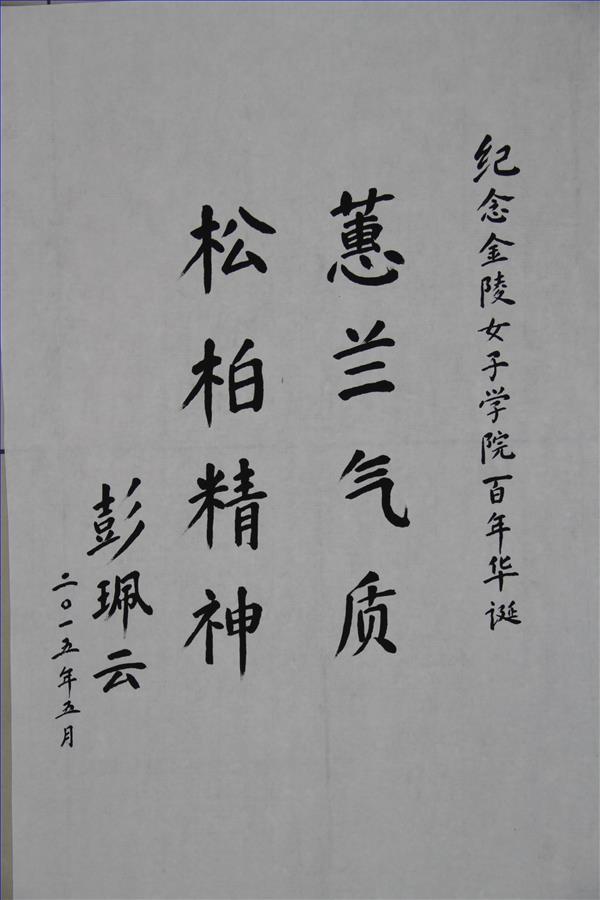 纪念金陵女子学院百年华诞
蕙兰气质
松柏精神
彭珮云
二〇一五年五月